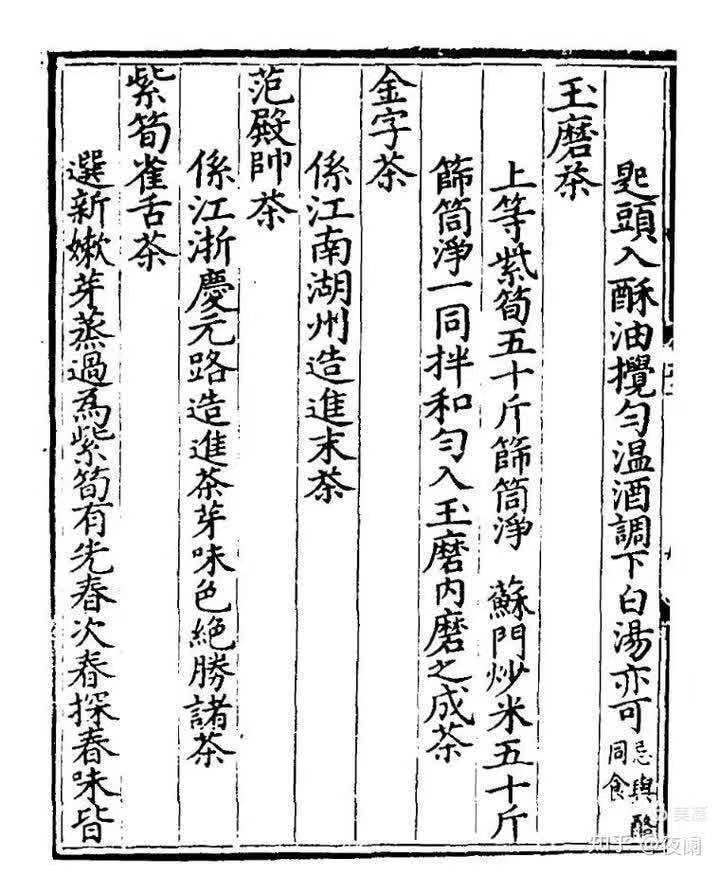 匙頭入酥油攪勻温酒調下白湯亦可忌與酪同食
玉磨茶
上等紫筍五十斤篩筒淨 蘇門炒米五十斤
篩筒淨一同拌和勻入玉磨內磨之成茶
金字茶
係江南湖州造進末茶
范殿帥茶
係江浙慶元路造進茶芽味色絶勝諸茶
紫筍雀舌茶
選新嫰芽蒸過為紫筍有先春次春探春味皆
知乎 @夜阑